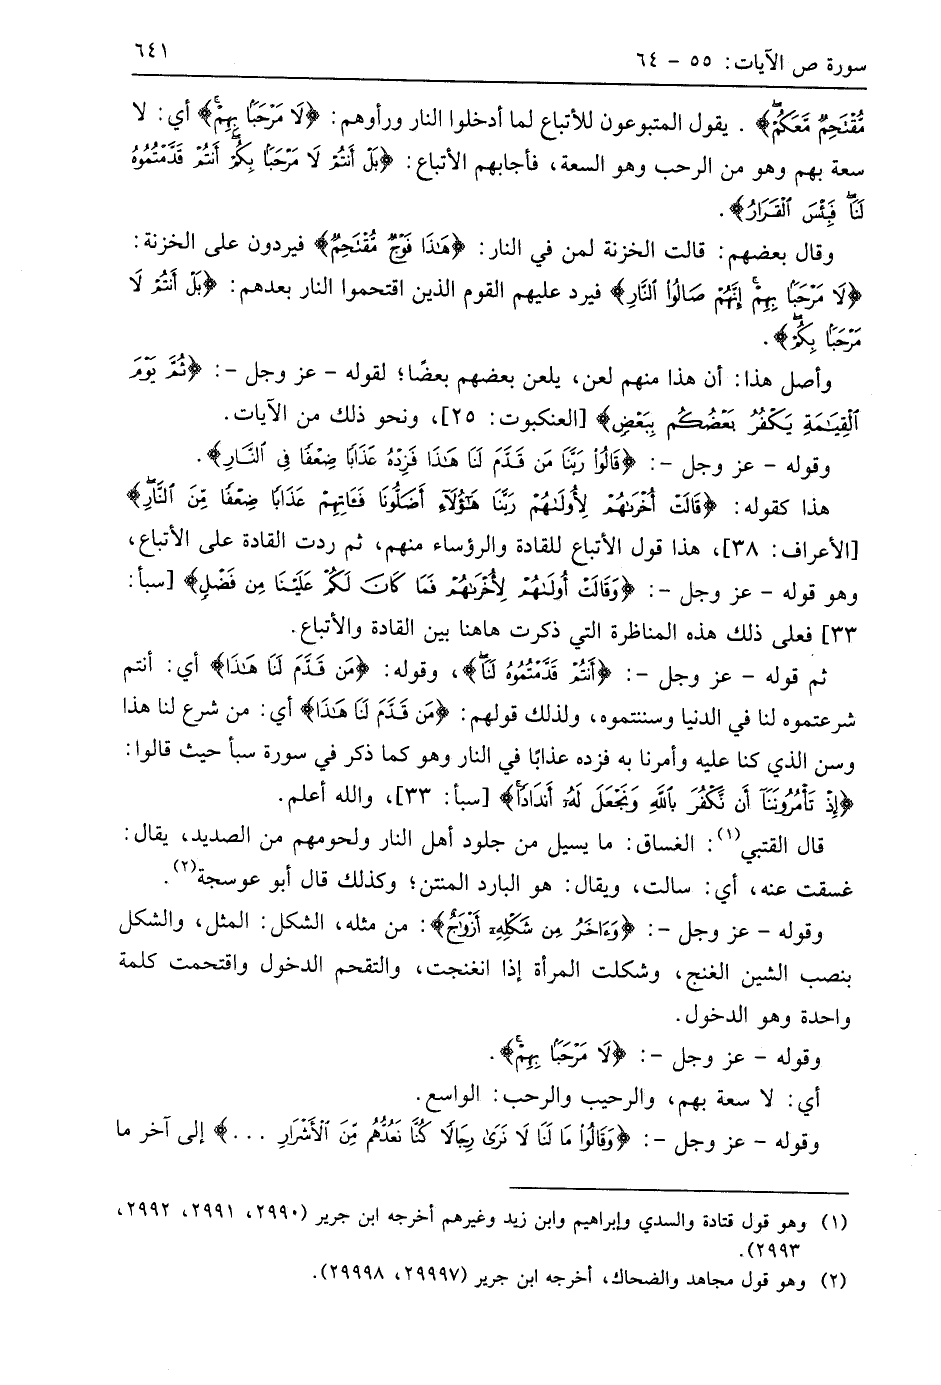 سورة ص الآيات: ٥٥ - ٦٤
٦٤١
مُّقْتَحِمٌ مَّعَكُمْ﴾ . يقول المتبوعون للأتباع لما أدخلوا النار ورأوهم: ﴿لَا مَرْحَبًا بِهِمْ﴾ أي: لا
سعة بهم وهو من الرحب وهو السعة، فأجابهم الأتباع: ﴿بَلْ أَنتُمْ لَا مَرْحَبًا بِكُمْ أَنتُمْ قَدَّمْتُمُوهُ
لَنَا فَبِئْسَ ٱلْقَرَارُ﴾.
وقال بعضهم: قالت الخزنة لمن في النار: ﴿هَٰذَا فَوْجٌ مُّقْتَحِمٌ﴾ فيردون على الخزنة:
﴿لَا مَرْحَبًا بِهِمْ إِنَّهُمْ صَالُوا۟ ٱلنَّارِ﴾ فيرد عليهم القوم الذين اقتحموا النار بعدهم: ﴿بَلْ أَنتُمْ لَا
مَرْحَبًا بِكُمْ﴾.
وأصل هذا: أن هذا منهم لعن، يلعن بعضهم بعضًا؛ لقوله - عز وجل -: ﴿ثُمَّ يَوْمَ
ٱلْقِيَٰمَةِ يَكْفُرُ بَعْضُكُم بِبَعْضٍ﴾ [العنكبوت: ٢٥]، ونحو ذلك من الآيات.
وقوله - عز وجل -: ﴿قَالُوا۟ رَبَّنَا مَن قَدَّمَ لَنَا هَٰذَا فَزِدْهُ عَذَابًا ضِعْفًا فِى ٱلنَّارِ﴾.
هذا كقوله: ﴿قَالَتْ أُخْرَىٰهُمْ لِأُولَىٰهُمْ رَبَّنَا هَٰٓؤُلَآءِ أَضَلُّونَا فَـَٔاتِهِمْ عَذَابًا ضِعْفًا مِّنَ ٱلنَّارِ﴾
[الأعراف: ٣٨]، هذا قول الأتباع للقادة والرؤساء منهم، ثم ردت القادة على الأتباع،
وهو قوله - عز وجل -: ﴿وَقَالَتْ أُولَىٰهُمْ لِأُخْرَىٰهُمْ فَمَا كَانَ لَكُمْ عَلَيْنَا مِن فَضْلٍ﴾ [سبأ:
٣٣] فعلى ذلك هذه المناظرة التي ذكرت هاهنا بين القادة والأتباع.
ثم قوله - عز وجل -: ﴿أَنتُمْ قَدَّمْتُمُوهُ لَنَا﴾، وقوله: ﴿مَن قَدَّمَ لَنَا هَٰذَا﴾ أي: أنتم
شرعتموه لنا في الدنيا وسننتموه، ولذلك قولهم: ﴿مَن قَدَّمَ لَنَا هَٰذَا﴾ أي: من شرع لنا هذا
وسن الذي كنا عليه وأمرنا به فزده عذابًا في النار وهو كما ذكر في سورة سبأ حيث قالوا:
﴿إِذْ تَأْمُرُونَنَآ أَن نَّكْفُرَ بِٱللَّهِ وَنَجْعَلَ لَهُۥٓ أَندَادًا﴾ [سبأ: ٣٣]، والله أعلم.
قال القتبي(١): الغساق: ما يسيل من جلود أهل النار ولحومهم من الصديد، يقال:
غسقت عنه، أي: سالت، ويقال: هو البارد المنتن؛ وكذلك قال أبو عوسجة(٢).
وقوله - عز وجل -: ﴿وَءَاخَرُ مِن شَكْلِهِۦٓ أَزْوَٰجٌ﴾: من مثله، الشكل: المثل، والشكل
بنصب الشين الغنج، وشكلت المرأة إذا انغنجت، والتقحم الدخول واقتحمت كلمة
واحدة وهو الدخول.
وقوله - عز وجل -: ﴿لَا مَرْحَبًا بِهِمْ﴾.
أي: لا سعة بهم، والرحيب والرحب: الواسع.
وقوله - عز وجل -: ﴿وَقَالُوا۟ مَا لَنَا لَا نَرَىٰ رِجَالًا كُنَّا نَعُدُّهُم مِّنَ ٱلْأَشْرَارِ ...﴾ إلى آخر ما
(١) وهو قول قتادة والسدي وإبراهيم وابن زيد وغيرهم أخرجه ابن جرير (٢٩٩٠، ٢٩٩١، ٢٩٩٢،
٢٩٩٣).
(٢) وهو قول مجاهد والضحاك، أخرجه ابن جرير (٢٩٩٩٧، ٢٩٩٩٨).